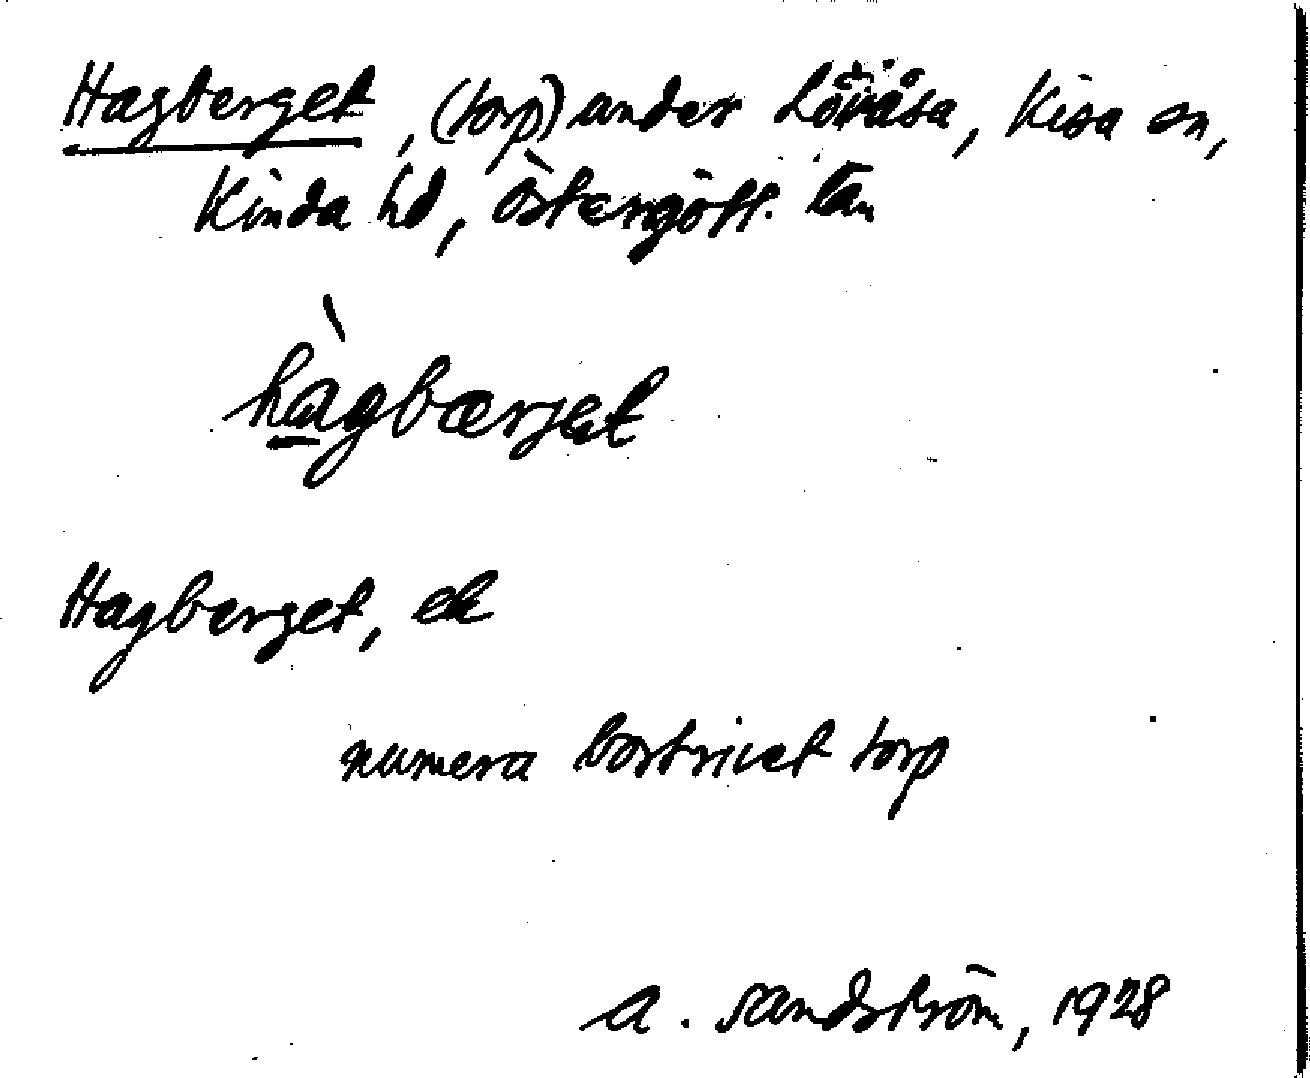 Hagberget, (torp) under Lövåsa, Kisa sn,
Kinda hd, Östergötl. län
hàgbærjet
Hagberget, ek
numera bortrivet torp
A. Sandström, 1928